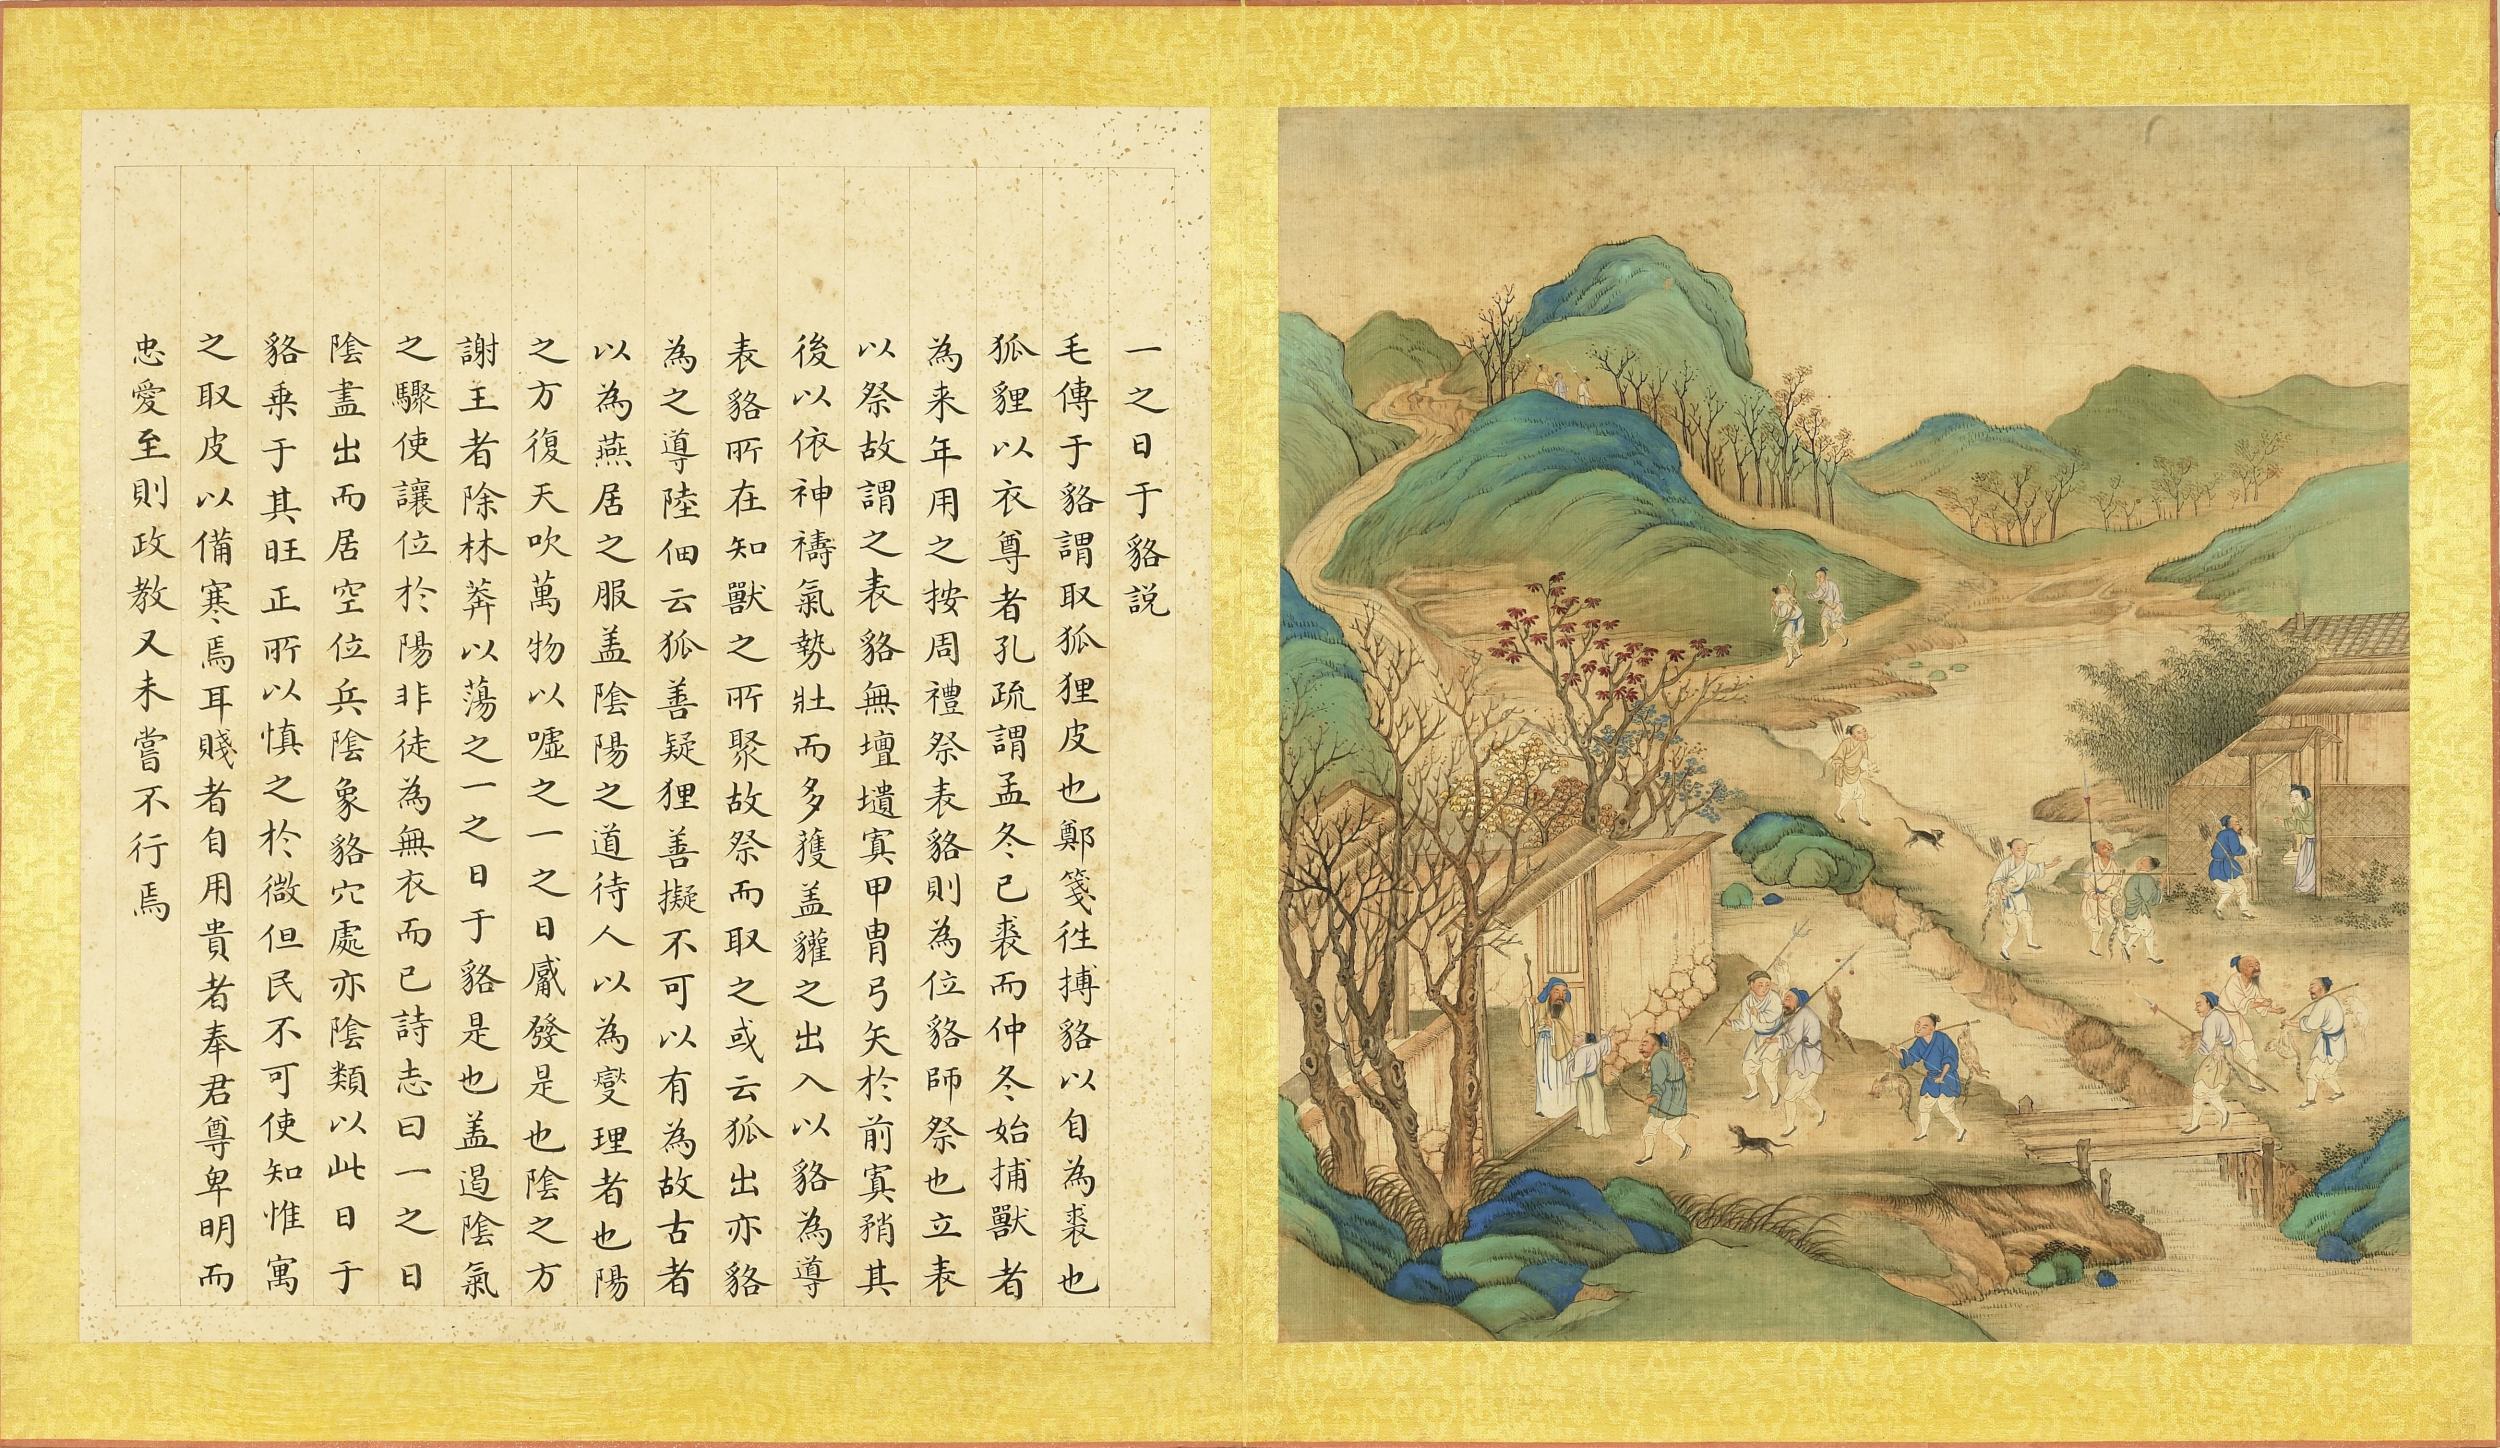 一之日于貉説
毛傳于貉謂取狐狸皮也鄭箋徃搏貉以自為裘也
狐貍以衣尊者孔疏謂孟冬已裘而仲冬始捕獸者
為来年用之按周禮祭表貉則為位貉師祭也立表
以祭故謂之表貉無壇墳寘甲冑弓矢於前寘矟其
後以依神禱氣勢壯而多獲盖貛之出入以貉為導
表貉所在知獸之所聚故祭而取之或云狐出亦貉
為之導陸佃云狐善疑狸善擬不可以有為故古者
以為燕居之服盖陰陽之道待人以為燮理者也陽
之方復天吹萬物以噓之一之日觱發是也陰之方
謝王者除林莽以蕩之一之日于貉是也盖遏陰氣
之驟使讓位於陽非徒為無衣而已詩志曰一之日
陰盡出而居空位兵陰象貉穴處亦陰類以此日于
貉乗于其旺正所以慎之於微但民不可使知惟寓
之取皮以備寒焉耳賤者自用貴者奉君尊卑明而
忠愛至則政教又未嘗不行焉